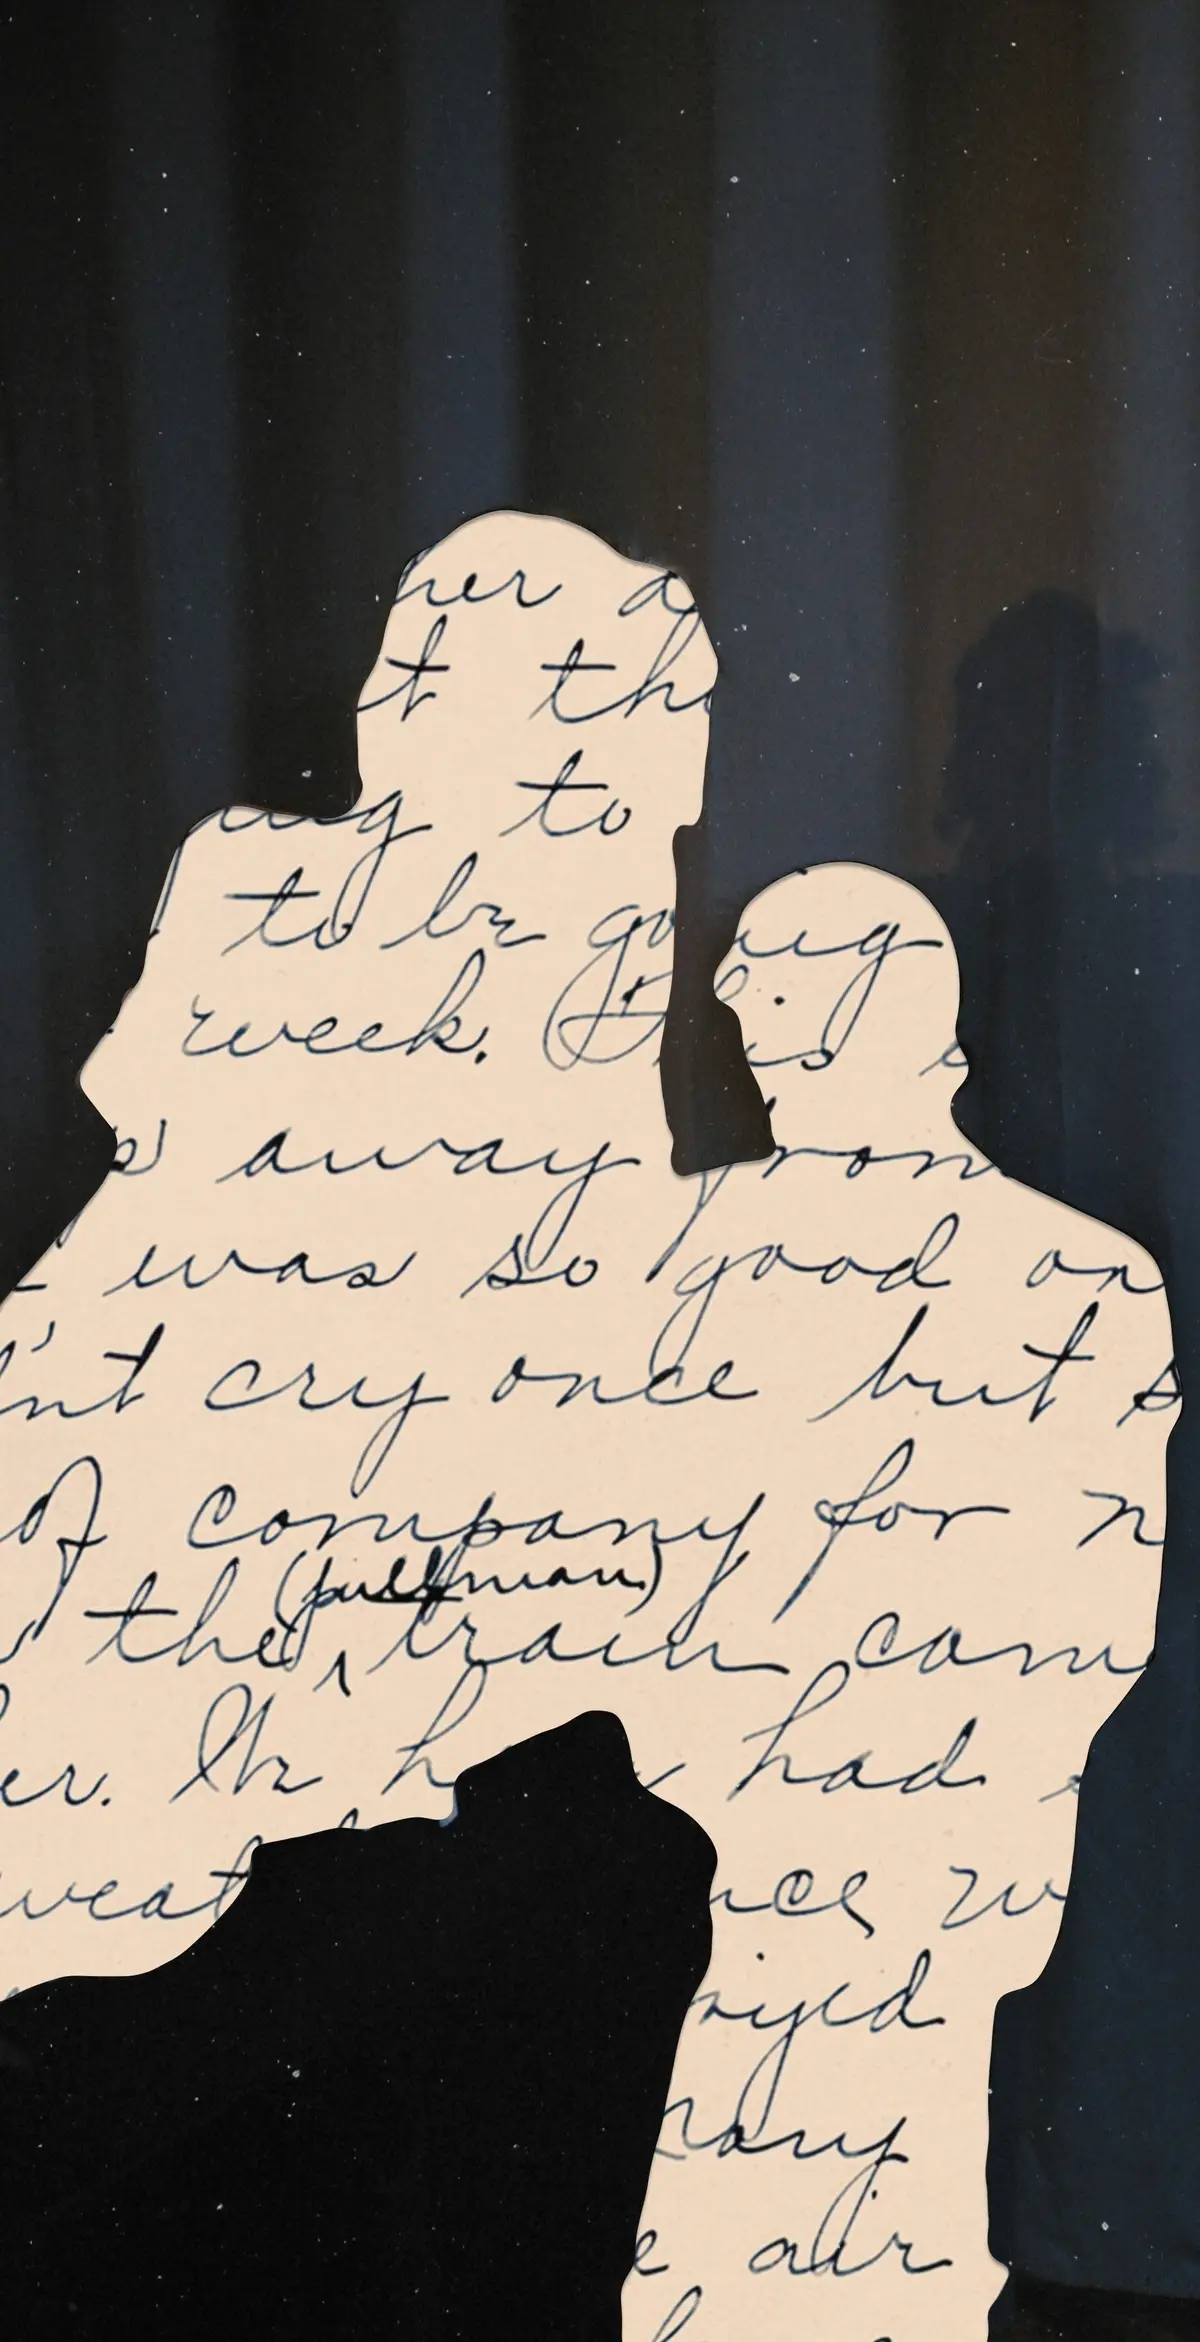 her a
t th
ing to
to be going
week. This i
s away from
t was so good on
n't cry once but s
of company for n
the (pullman) train came
er. We h had
weat nce w
njoyed
many
e air